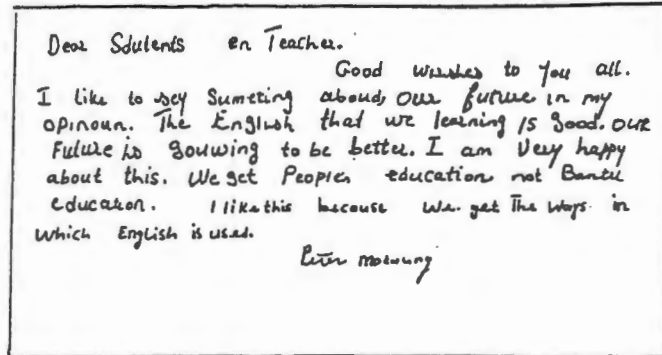 Dear Sdutents en Teacher.
Good wushes to you all.
I like to sey Sumeting aboud, our future in my
opinoun. The English that we learning is Good. our
Future is gouwing to be better. I am Very happy
about this. We get Peoples education not Bantu
education. I like this because we get The ways in
which English is used.
Peter